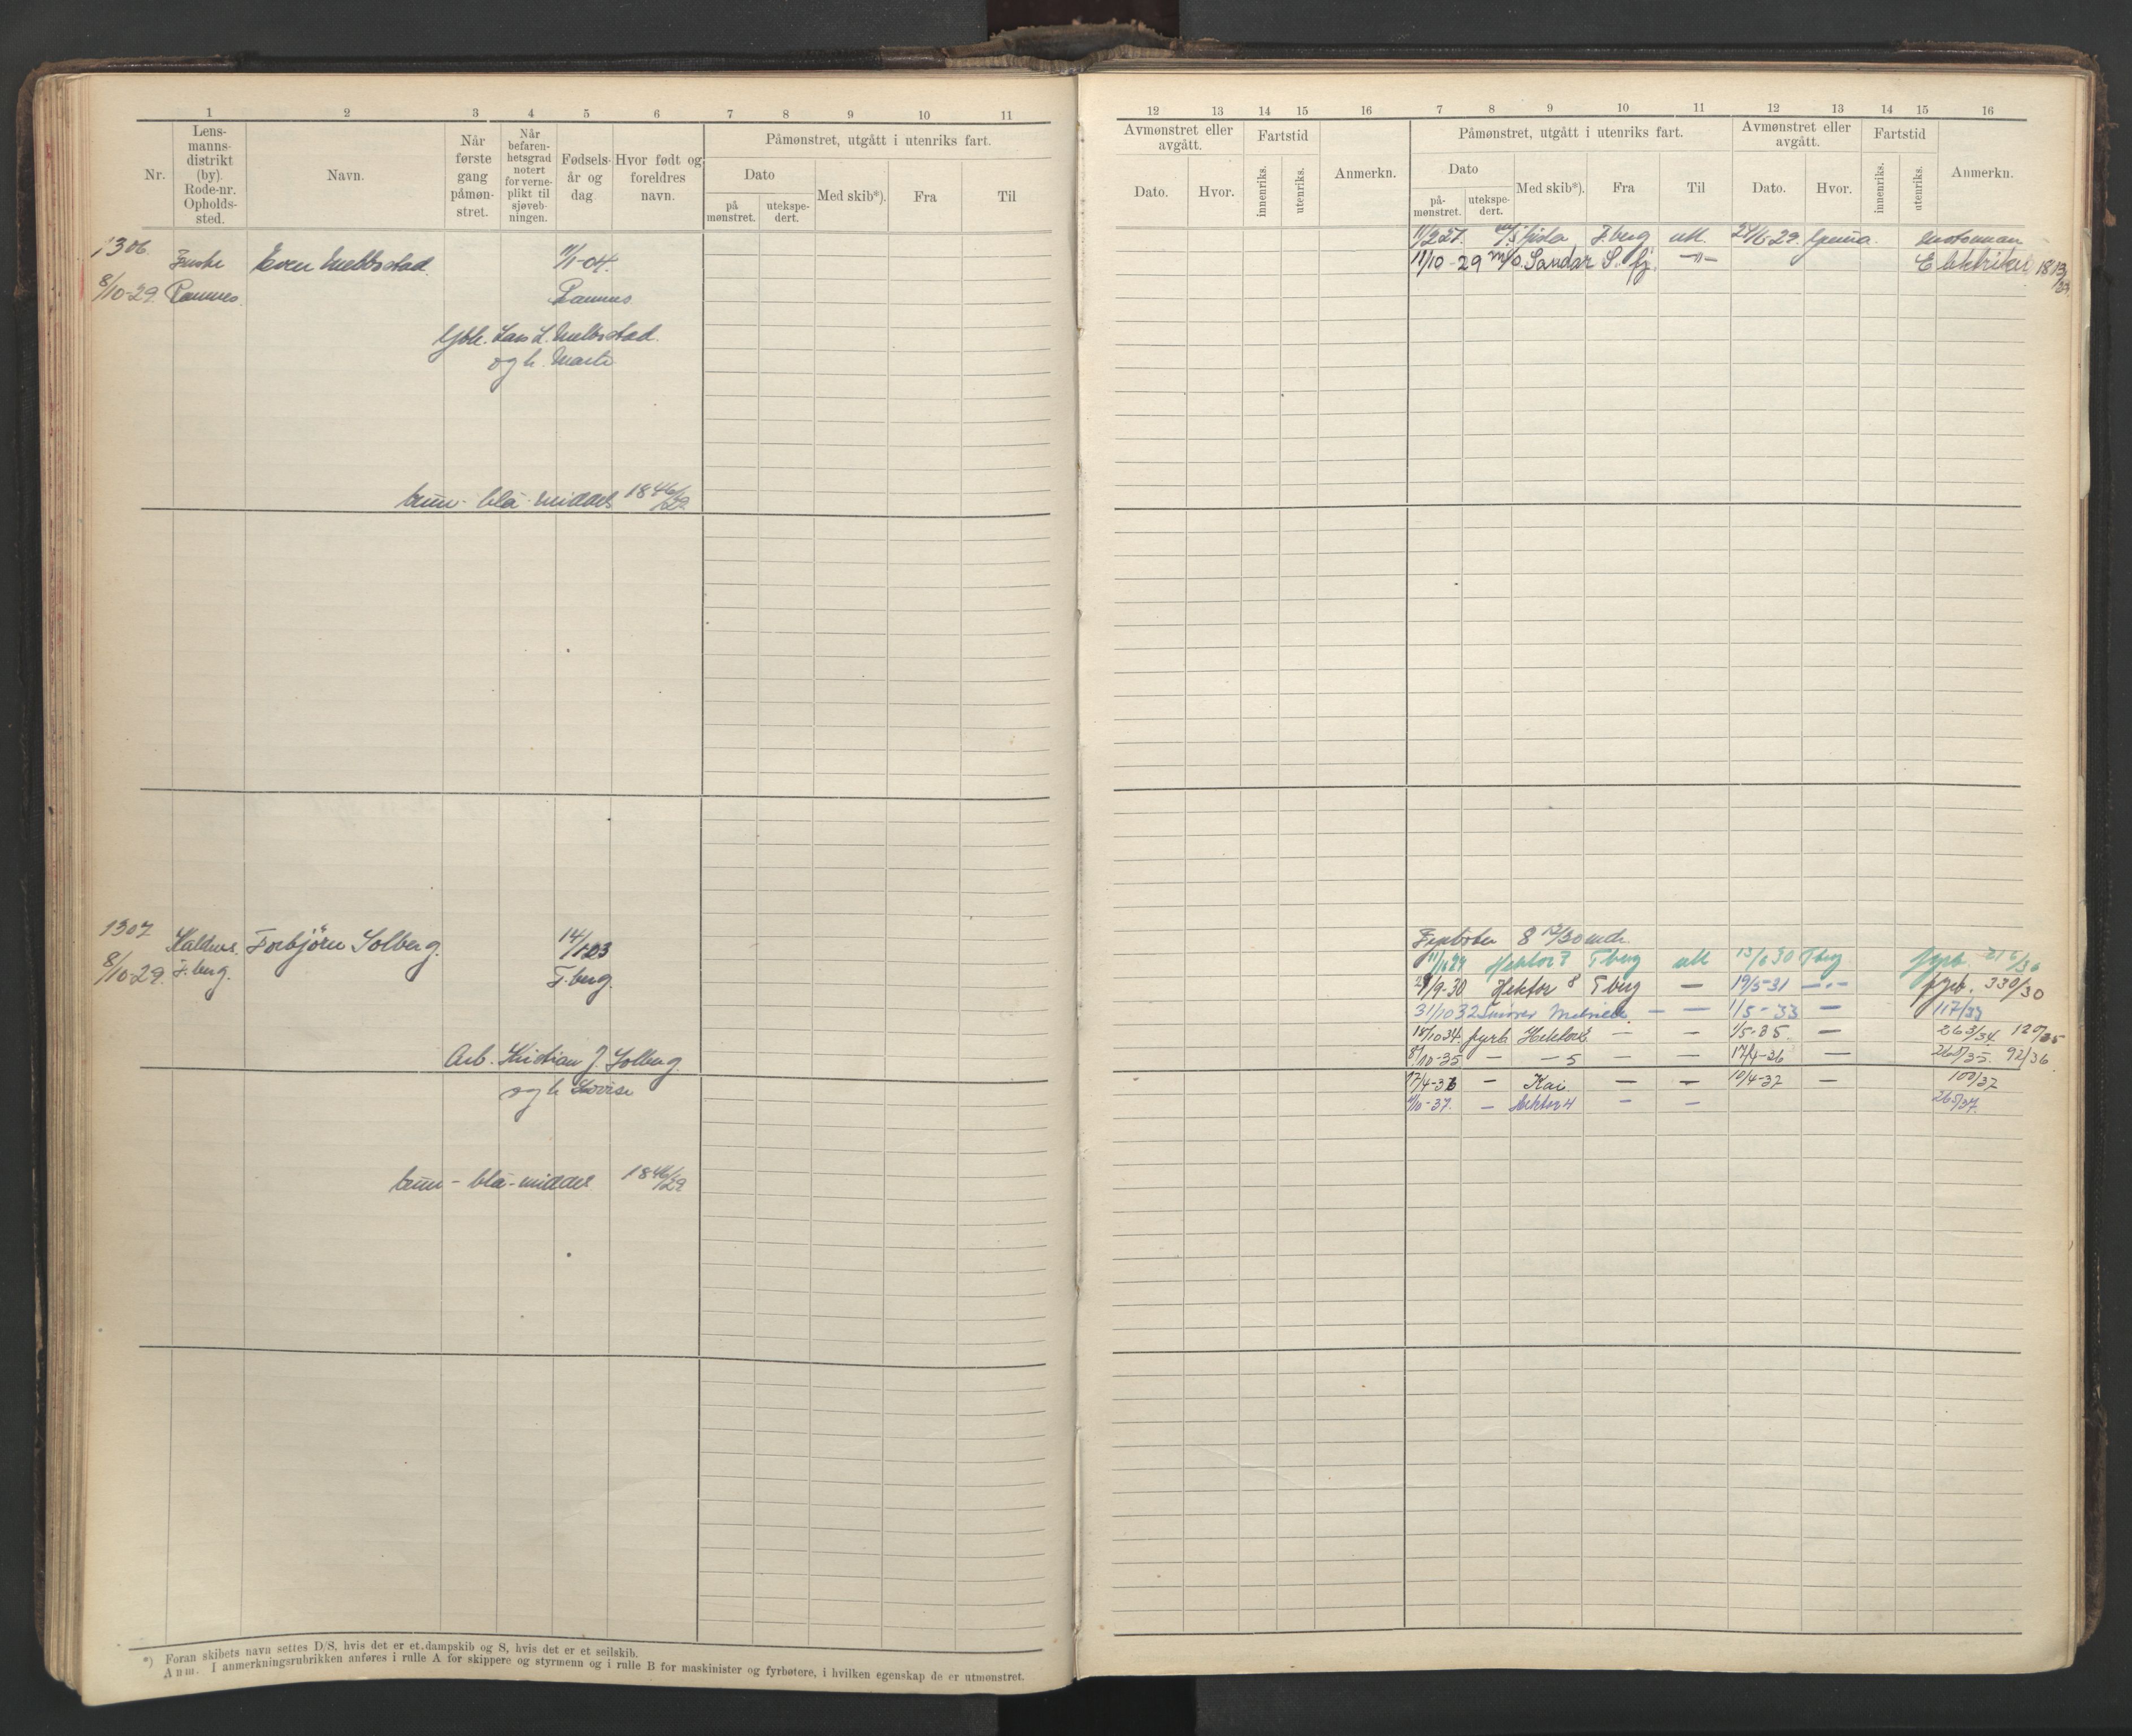 1 2 3 4 5 6 7 8 9 10 11
Nr.
Lens-
manns-
distrikt
(by).
Rode-nr.
Opholds-
sted.
Navn.
Når
første
gang
påmøn-
stret.
Når
befaren-
hetsgrad
notert
for verne-
plikt til
sjøveb-
ningen.
Fødsels-
år og
dag.
Hvor født og
foreldres
navn.
Påmønstret, utgått i utenriks fart.
Dato
på
mønstret.
utekspe-
dert.
Med skib*).
Fra
Til
1306
8/10-29.
Ramnes.
Even Melbostad.
1/1-04.
Ramnes.
Gbr. Lars L. Melbostad.
og h. Marte
brun- blå- middel 1846/29
1307
8/10-29.
Kaldnes.
T.berg.
Torbjörn Solberg.
14/1-03
T.berg.
Arb. Kristian J. Solberg.
og h. Lovise
brun- blå- middel 1846/29
*) Foran skibets navn settes D/S, hvis det er et dampskib og S, hvis det er et seilskib.
Anm. I anmerkningsrubrikken anføres i rulle A for skippere og styrmenn og i rulle B for maskinister og fyrbøtere, i hvilken egenskap de er utmønstret.
12 13 14 15 16 7 8 9 10 11 12 13 14 15 16
Avmønstret eller
avgått.
Dato.
Hvor.
Fartstid
innenriks.
utenriks.
Anmerkn.
Påmønstret, utgått i utenriks fart.
Dato
på-
mønstret.
utekspe-
dert.
Med skib*).
Fra
Til
Avmønstret eller
avgått.
Dato.
Hvor.
Fartstid
innenriks.
utenriks.
Anmerkn.
11/2 27. T.berg utl. 28/6-29. Motorman
11/10-29 m/s. Sandar S. fj. -"- Elektriker 1813/33
Fyrböter 8 12/30 mdr.
11/10 29 Hektor 7 Tberg utl 13/6 30 Tberg fyrb. 216/30
29/9-30 Hektor 8 Tberg — 19/5-31 -"- fyrb. 330/30
31/10 32 — — 1/5-33 — 117/33
18/10 34. fyrb Hektor — — 1/5-35. — 263/34. 120/35
8/10-35 — — 5 — — 17/4-36 — 265/35. 92/36.
17/4-36 — Kai. — — 10/4-37 — 100/37
1/10-37. — Hektor 4 — — 265/37.